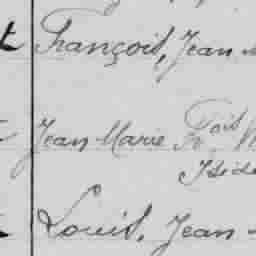 François, Jean
Jean Marie Fois
Iside
Louis, Jean